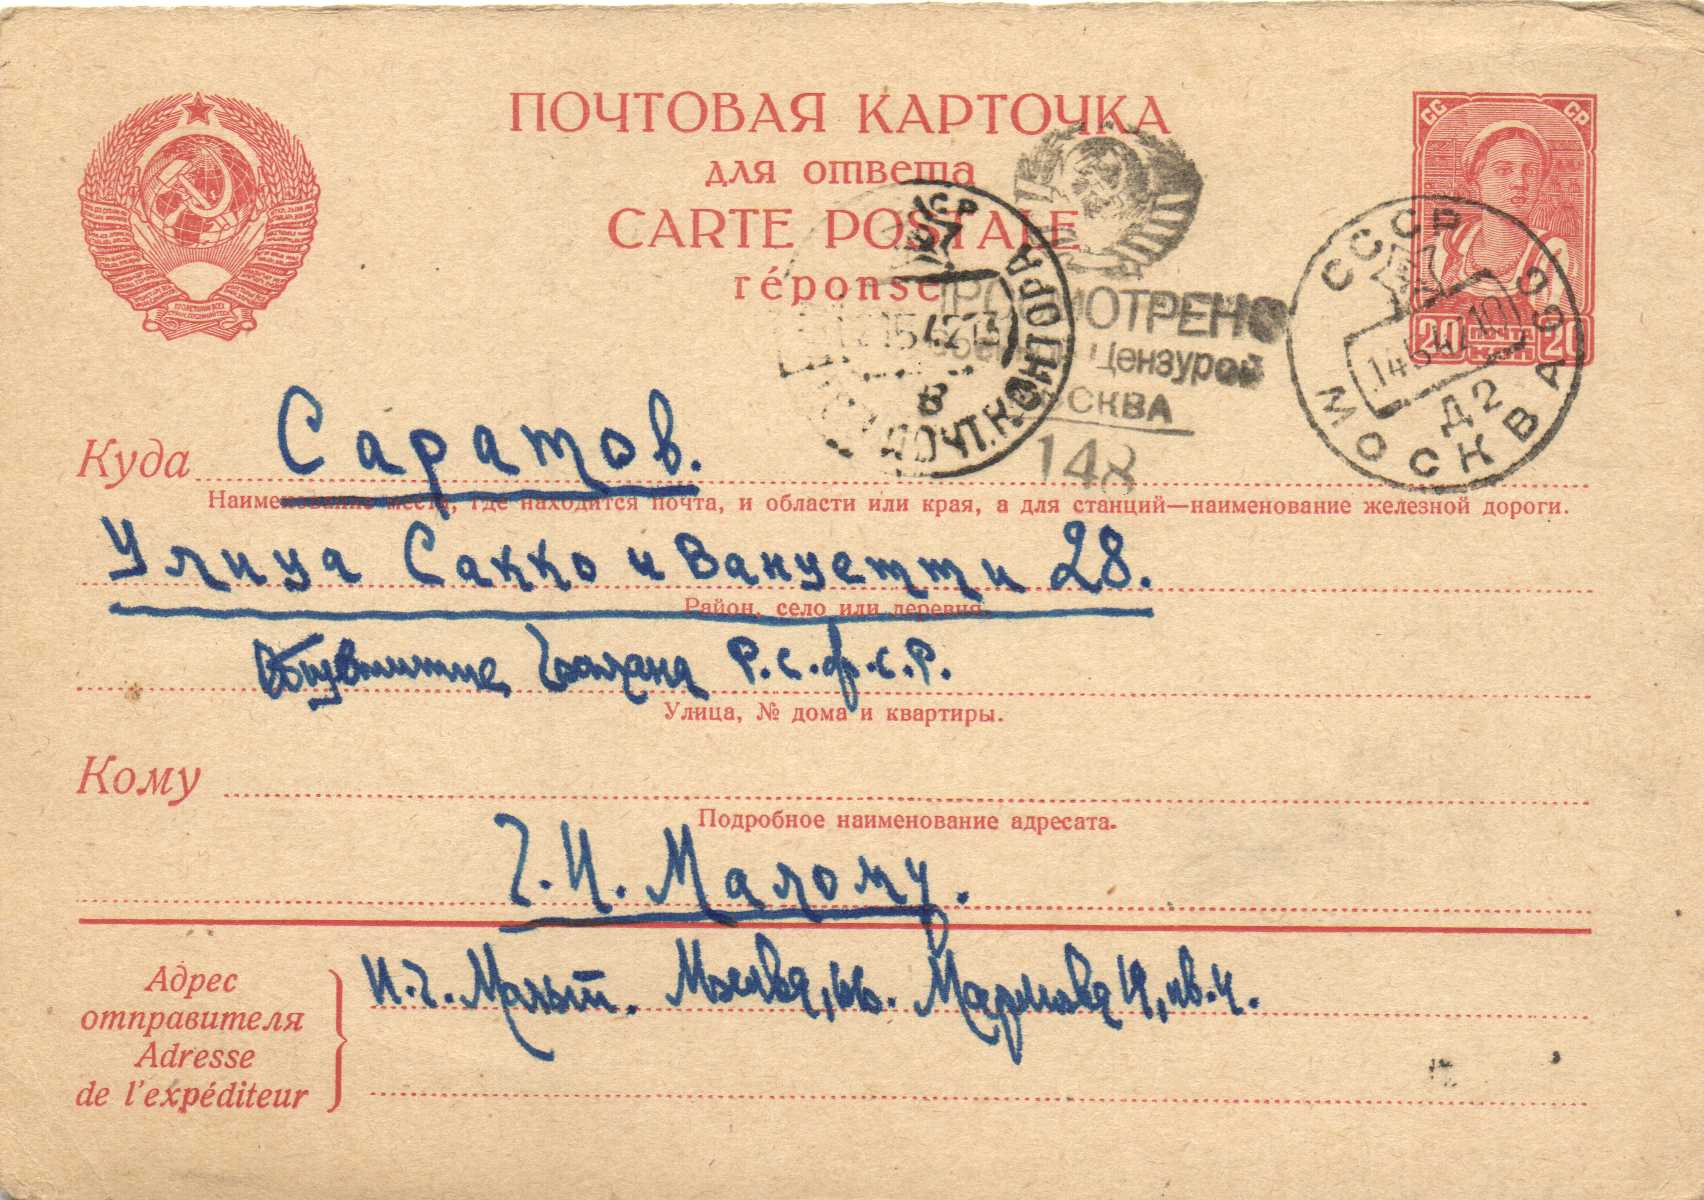 ПОЧТОВАЯ КАРТОЧКА
для ответа
CARTE POSTALE
réponse
СС СР
20 ПОЧТА КОП. 20
СССР
МОСКВА
Д2
ПРОСМОТРЕНО
Военной Цензурой
МОСКВА
148
ПОЧТ. КОНТОРА
Куда Саратов.
Наименование места, где находится почта, и области или края, а для станций—наименование железной дороги.
Улица Сакко и Ванцетти 28.
Район, село или деревня.
Р.С.Ф.С.Р.
Улица, № дома и квартиры.
Кому
Подробное наименование адресата.
Г.И. Малому.
Адрес
отправителя
Adresse
de l'expéditeur
И.Г. Москва,